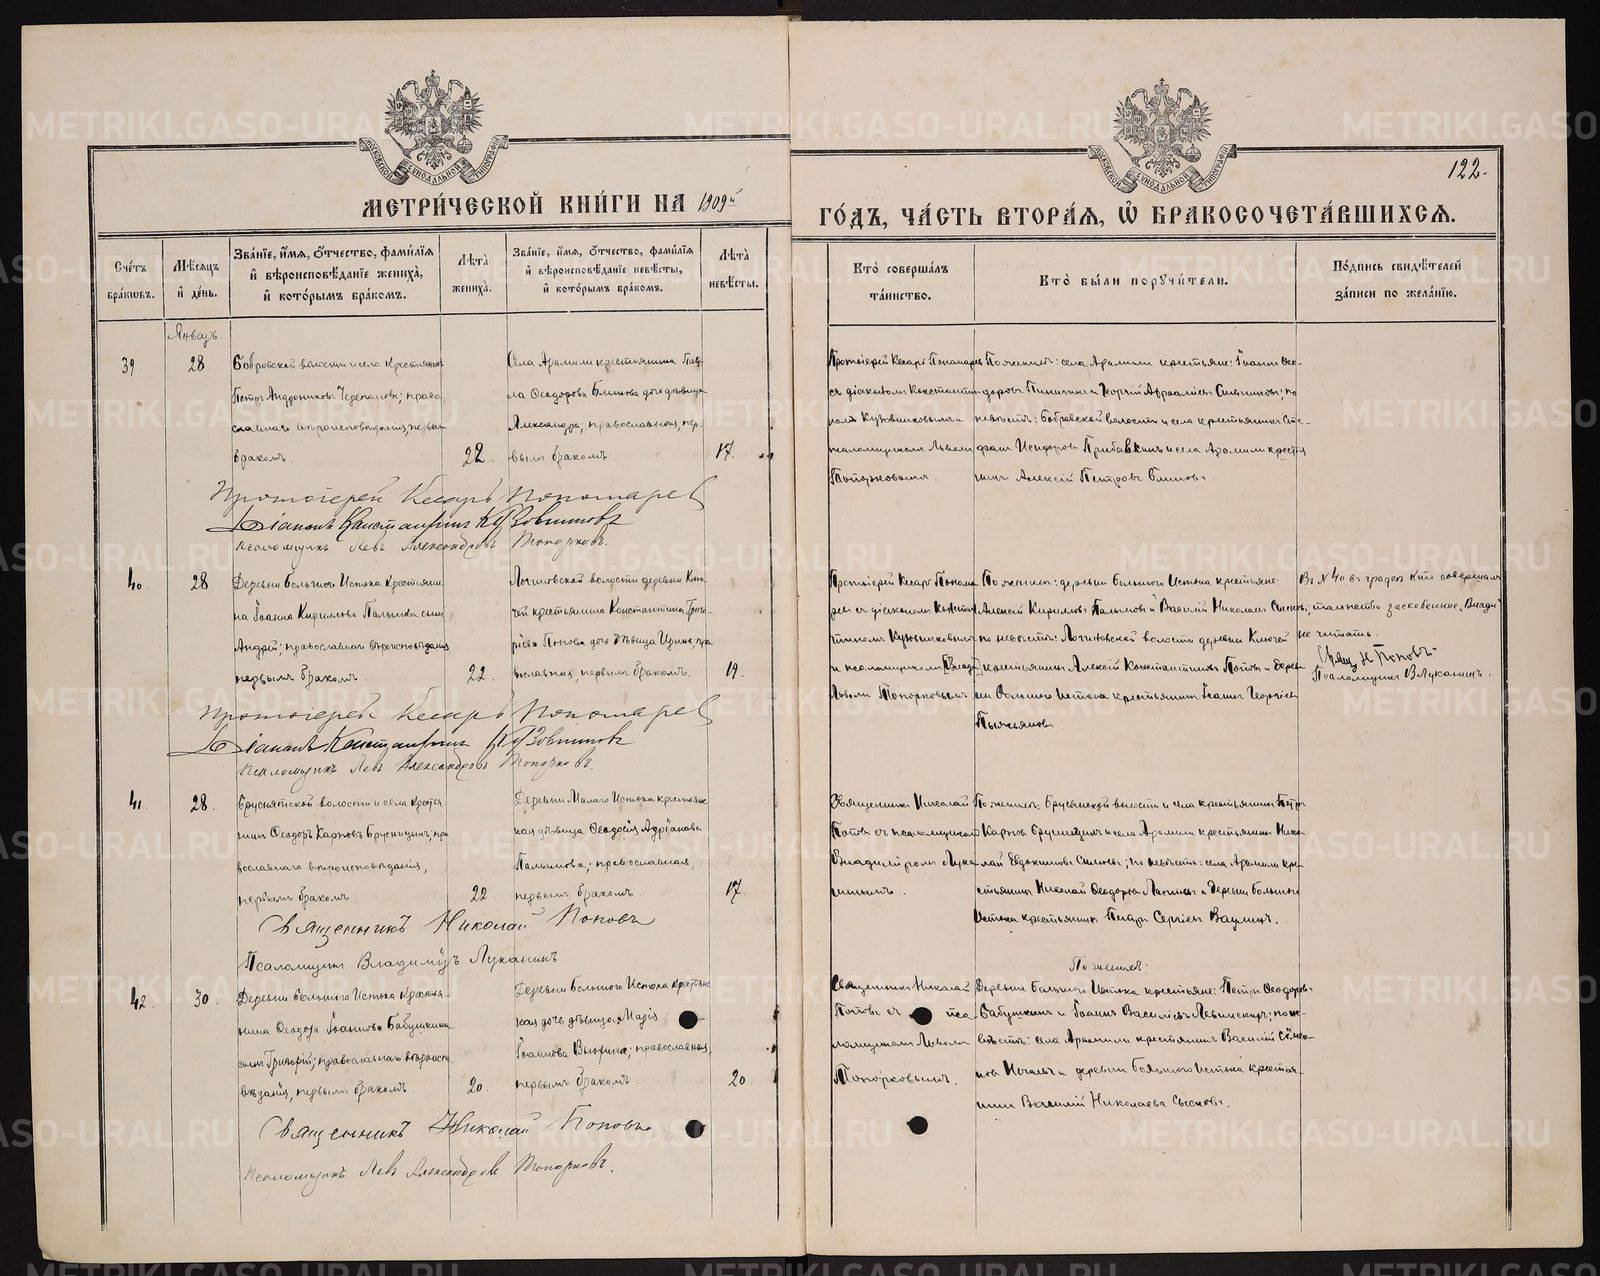 МЕТРИ́ЧЕСКОЙ КНИ́ГИ НА 1909й
ГО́ДЪ, ЧА́СТЬ ВТОРА́Я, Ѡ БРАКОСОЧЕТА́ВШИХСЯ.
122.
Сче́тъ бра́кѡвъ.
Мѣ́сяцъ и де́нь.
Зва́нїе, и́мя, ѻ́тчество, фами́лїя и вѣроисповѣ́данїе жениха̀, и кото́рымъ бра́комъ.
Лѣта̀ жениха̀.
Зва́нїе, и́мя, ѻ́тчество, фами́лїя и вѣроисповѣ́данїе невѣ́сты, и кото́рымъ бра́комъ.
Лѣта̀ невѣ́сты.
Кто̀ соверша́лъ та́инство.
Кто̀ бы́ли порꙋчи́тели.
По́дпись свидѣ́телей за́писи по жела́нїю.
Январь.
39.
28
Бобровской волости и села крестьянинъ
Петръ Андрониковъ Черепановъ; право
славнаго вѣроисповѣданія, первымъ
бракомъ.
22.
Села Арамили крестьянина Пав-
ла Ѳеодорова Блинова дочь дѣвица
Александра, православная, пер-
вымъ бракомъ.
17.
Протоіерей Кесарь Пономаревъ
съ діакономъ Константи-
номъ Кузовниковымъ и
псаломщикомъ Львомъ
Топорковымъ.
По женихѣ: села Арамили крестьяне: Іоаннъ Ѳео-
доровъ и Георгій; по
невѣстѣ: Бобровской волости и села крестьянинъ Сте-
фанъ Исидоровъ Прибавкинъ и села Арамили крестья
нинъ Алексѣй Петровъ Блиновъ.
Протоіерей Кесарь Пономаревъ
Діаконъ Константинъ Кузовниковъ
Псаломщикъ Левъ Александровъ Топорковъ.
40.
28.
Деревни Большого Истока крестьяни-
на Іоанна Кириллова Пальмова сынъ
Андрей; православнаго вѣроисповѣданія
первымъ бракомъ.
22.
Логиновской волости деревни Клю-
чей крестьянина Константина Григо-
рьева Попова дочь дѣвица Ирина, пра
вославная, первымъ бракомъ.
19.
Протоіерей Кесарь Понома
ревъ съ діакономъ Констан
тиномъ Кузовниковымъ
и псаломщикомъ [Влади]
Львомъ Топорковымъ
По женихѣ: деревни Большого Истока крестьяне:
Алексѣй Кирилловъ Пальмовъ и Василій Николаевъ Сысковъ;
по невѣстѣ: Логиновской волости деревни Ключей
крестьянинъ Алексѣй Константиновъ Поповъ и дерев
ни Большого Истока крестьянинъ Іоаннъ Георгіевъ
Пьянковъ
Въ №40 въ графѣ Кто совершалъ
таинство заскобленное „Влади“
не читать.
Свящ. Н Поповъ
Псаломщикъ В Луканинъ.
Протоіерей Кесарь Пономаревъ
Діаконъ Константинъ Кузовниковъ
Псаломщикъ Левъ Александровъ Топорковъ.
41.
28.
Бруснятской волости и села крестья-
нинъ Ѳеодоръ Карповъ Брусницынъ; пра
вославнаго вѣроисповѣданія,
первымъ бракомъ.
22
Деревни Малаго Истока крестьянс
кая дѣвица Ѳеодосія Адріанова
Пальмова; православная,
первымъ бракомъ.
17.
Священникъ Николай
Поповъ съ псаломщикомъ
Владиміромъ Лука
нинымъ.
По женихѣ: Бруснятской волости и села крестьянинъ Петръ
Карповъ Брусницынъ и села Арамили крестьянинъ Нико-
лай Евдокимовъ; по невѣстѣ: села Арамили кре-
стьянинъ Николай Ѳеодоровъ и деревни Большого
Истока крестьянинъ Петръ Сергіевъ Ваулинъ.
Священникъ Николай Поповъ
Псаломщикъ Владиміръ Луканинъ
42.
30.
Деревни Большого Истока крестья-
нина Ѳеодора Іоаннова Бабушкина
сынъ Григорій; православнаго вѣроиспо
вѣданія, первымъ бракомъ.
20.
Деревни Большого Истока крестьянс
кая дочь дѣвица Марія
Іоаннова; православная,
первымъ бракомъ.
20
Священникъ Николай
Поповъ съ пса-
ломщикомъ Львомъ
Топорковымъ.
По женихѣ:
Деревни Большого Истока крестьяне: Петръ Ѳеодоровъ
Бабушкинъ и Іоаннъ Василіевъ; по не-
вѣстѣ: села Арамили крестьянинъ Василій Симео-
новъ и деревни Большого Истока крестья-
нинъ Василій Николаевъ Сысковъ.
Священникъ Николай Поповъ.
Псаломщикъ Левъ Александровъ Топорковъ.
METRIKI.GASO-URAL.RU